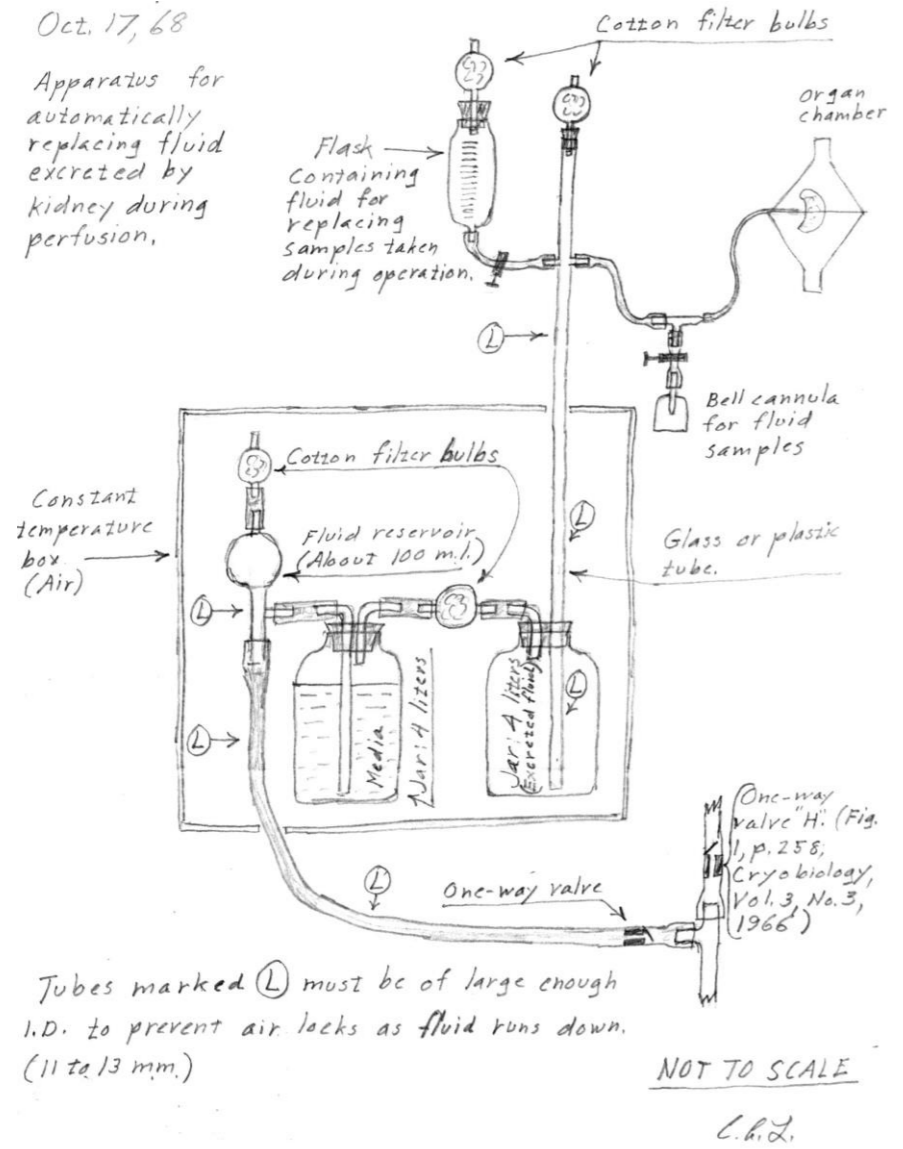 Oct. 17, 68
Apparatus for
automatically
replacing fluid
excreted by
kidney during
perfusion.
Cotton filter bulbs
Organ
chamber
Flask
Containing
fluid for
replacing
samples taken
during operation.
L
Bell cannula
for fluid
samples
Constant
temperature
box
(Air)
Cotton filter bulbs
Fluid reservoir
(About 100 m.l.)
L
Glass or plastic
tube.
L
Media
Jar: 4 liters
Jar: 4 liters
(Excreted fluid)
L
L
L
One-way valve
(One-way
valve "H". (Fig.
1, p. 258,
Cryobiology,
Vol. 3, No. 3,
1966)
Tubes marked L must be of large enough
I.D. to prevent air locks as fluid runs down.
(11 to 13 mm.)
NOT TO SCALE
C.A.L.